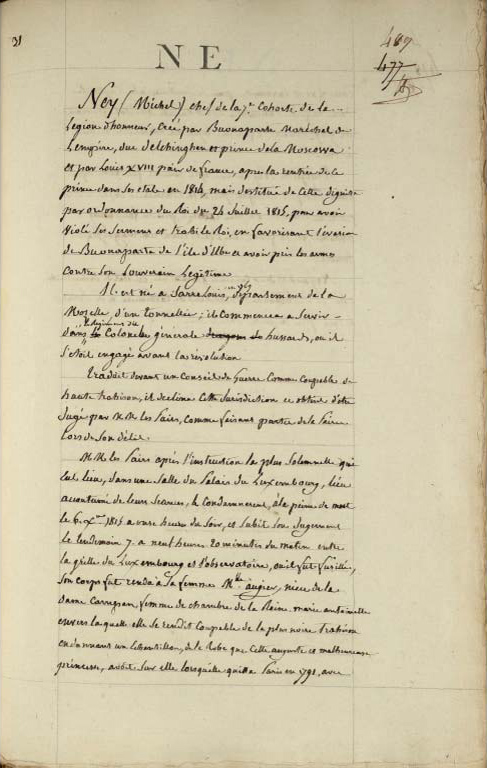 31
N E
487
477
Ney (Michel) chef de la 7e Cohorte de la
Légion d'honneur, Créé par Buonaparte Maréchal de
L'empire, duc d'elchinghen et prince de la Moscowa
et par Louis XVIII pair de france, après la rentrée de ce
prince dans ses etats en 1814, mais destitué de Cette dignité
par ordonnance du Roi du 24 Juillet 1815, pour avoir
Violé ses Sermens et trahi le Roi, en favorisant l'évasion
de Buonaparte de l'île d'Elbe et avoir pris les armes
Contre Son Souverain Légitime
Il est né à Sarrelouis, département de la
Moselle, d'un Tonnellier; il Commença à Servir
dans le Régiment de Colonel général hussards, où il
S'étoit engagé avant la révolution
Traduit devant un Conseil de Guerre Comme Coupable de
haute trahison, il déclina Cette Jurisdiction et obtint d'être
Jugé par M.M. les Pairs, Comme faisant partie de la Pairie
Lors de Son délit.
M.M. les Pairs après l'instruction la plus Solemnelle qui
eut lieu, dans une Salle du Palais du Luxembourg, lieu
accoutumé de leurs Séances, le Condamnèrent à la peine de mort
le 6 Xbre 1815 a onze heures du Soir, et Subit Son Jugement
le lendemain 7. a neuf heures 20 minutes du matin entre
la grille du Luxembourg et l'observatoire, où il fut fusillé,
Son corps fut rendu à Sa femme Mlle augier, nièce de la
dame Carregean, femme de chambre de la Reine marie antoinette
envers laquelle elle Se rendit Coupable de la plus noire trahison
en donnant un Echantillon de la Robe que Cette auguste et malheureuse
princesse, avoit Sur elle lorsqu'elle quitta Paris en 1791, avec